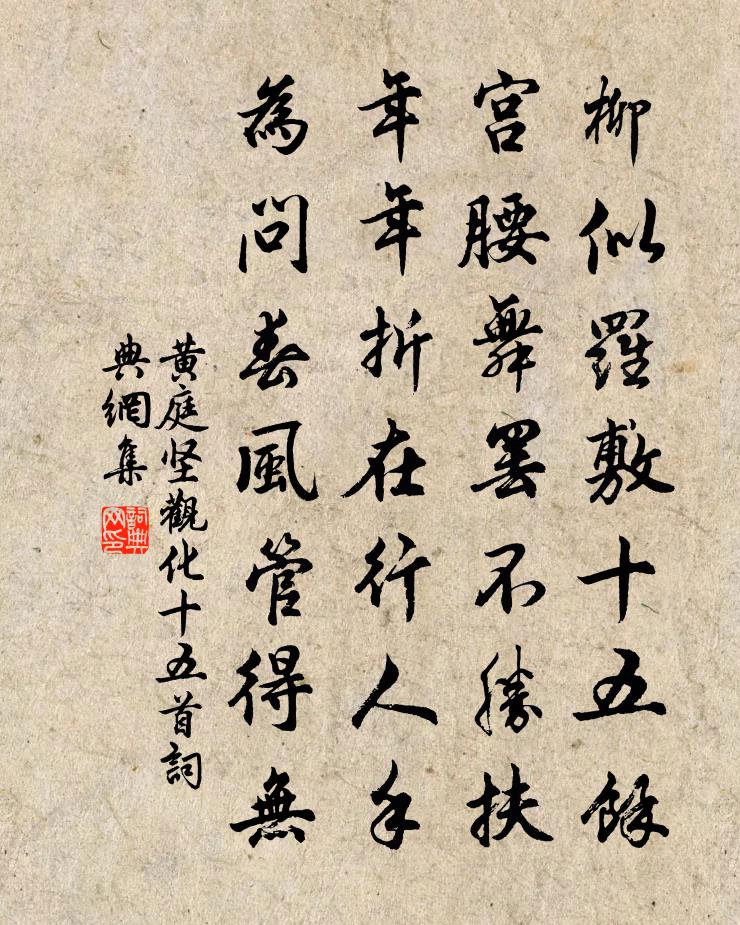 柳似羅敷十五餘
宫腰舞罷不勝扶
年年折在行人手
為問春風管得無
黄庭坚觀化十五首詞
典網集
詞典
网印